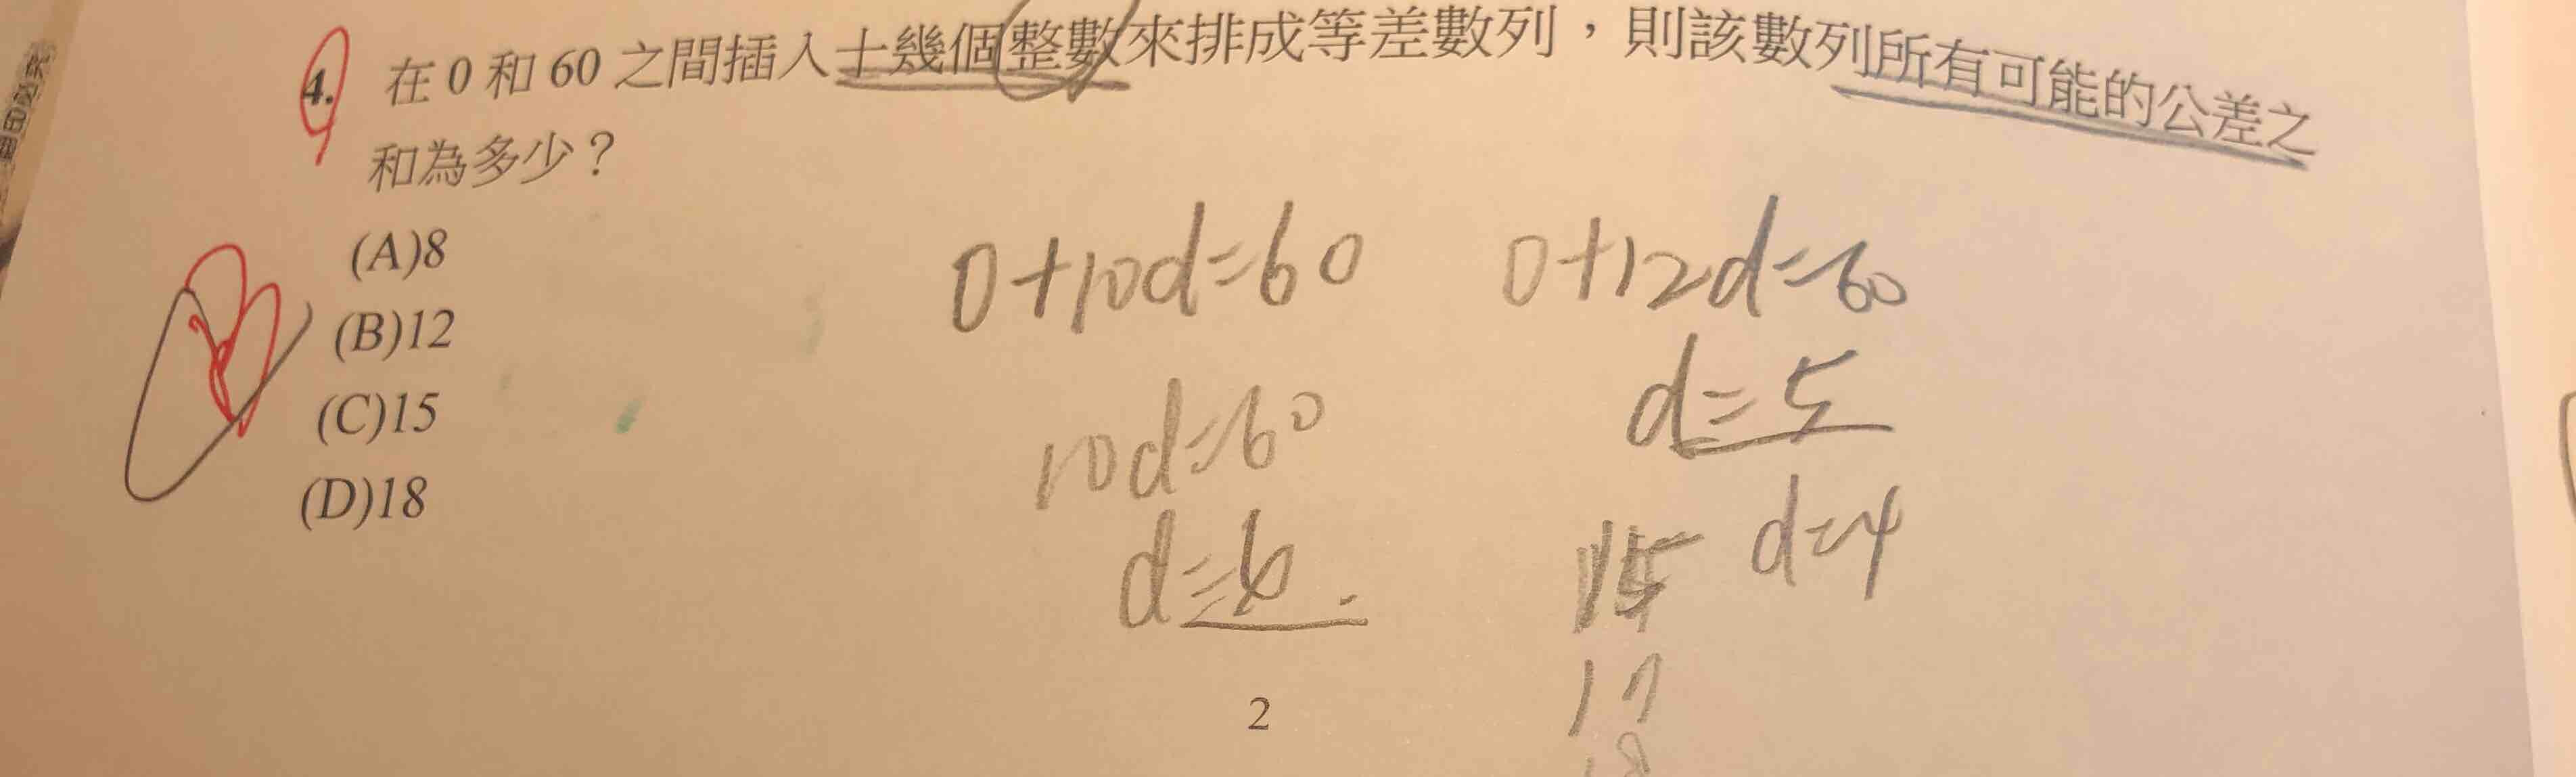 4. 在 0 和 60 之間插入十幾個整數來排成等差數列，則該數列所有可能的公差之
和為多少？
(A)8
(B)12
(C)15
(D)18
0+10d=60
10d=60
d=6
0+12d=60
d=5
15 d=4
17
18
2